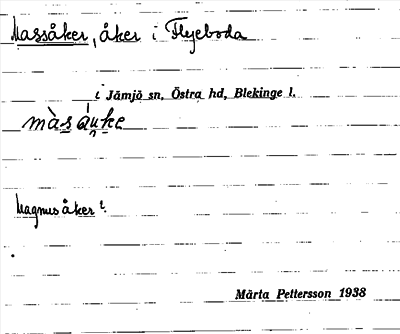 Massåker, åker i Flyeboda
i Jämjö sn, Östra hd, Blekinge l.
màsåu̯ke
Magnusåker?
Märta Pettersson 1938